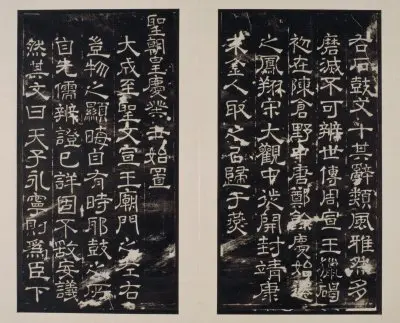 右石鼓文十其辭類風雅然多
磨滅不可辨世傳周宣王獵碣
初在陳倉野中唐鄭餘慶始遷
之鳳翔宋大觀中徙開封靖康
末金人取之歸于燕
聖朝皇慶癸丑始置
大成至聖文宣王廟門之左右
豈物之顯晦自有時耶鼓之所
自先儒辨證已詳固不敢妄議
然其文曰天子永寧則爲臣下